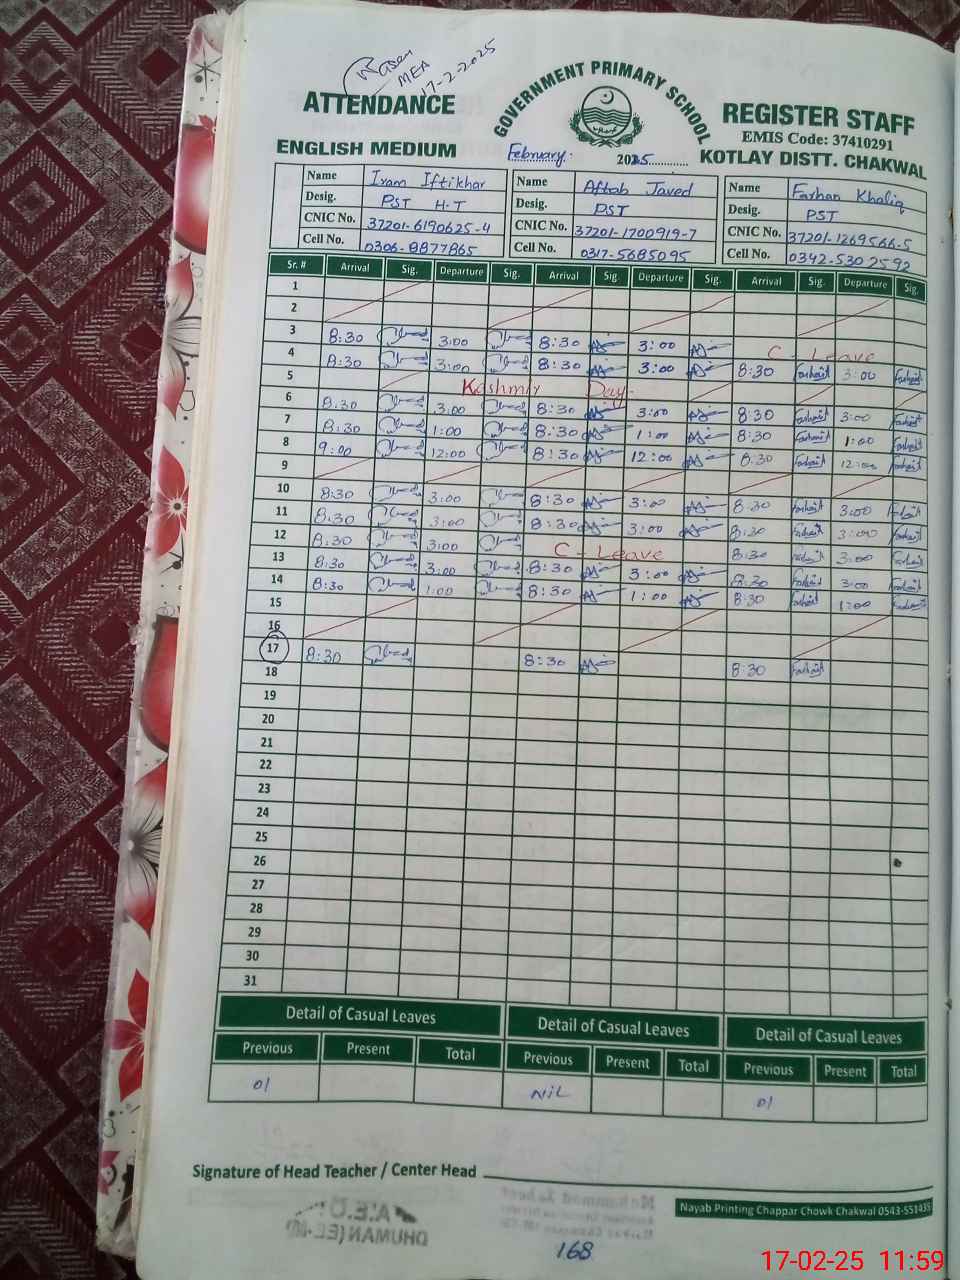 MEA
17-2-2025
ATTENDANCE
GOVERNMENT PRIMARY SCHOOL
REGISTER STAFF
EMIS Code: 37410291
ENGLISH MEDIUM
February: 2025
KOTLAY DISTT. CHAKWAL
Name Iram Iftikhar Name Aftab Javed Name Farhan Khaliq
Desig. PST H.T Desig. PST Desig. PST
CNIC No. 37201-6190625-4 CNIC No. 37201-1700919-7 CNIC No. 37201-1269566-5
Cell No. 0306-8877865 Cell No. 0317-5685095 Cell No. 0342-5302592
Sr. # Arrival Sig. Departure Sig. Arrival Sig. Departure Sig. Arrival Sig. Departure Sig.
1
2
3 8:30 3:00 8:30 3:00 C - Leave
4 8:30 3:00 8:30 3:00 8:30 3:00
5 Kashmir Day
6 8:30 3:00 8:30 3:00 8:30 3:00
7 8:30 1:00 8:30 1:00 8:30 1:00
8 9:00 12:00 8:30 12:00 8:30 12:00
9
10 8:30 3:00 8:30 3:00 8:30 3:00
11 8:30 3:00 8:30 3:00 8:30 3:00
12 8:30 3:00 C - Leave 8:30 3:00
13 8:30 3:00 8:30 3:00 8:30 3:00
14 8:30 1:00 8:30 1:00 8:30 1:00
15
16
17 8:30 8:30 8:30
18
19
20
21
22
23
24
25
26
27
28
29
30
31
Detail of Casual Leaves Detail of Casual Leaves Detail of Casual Leaves
Previous Present Total Previous Present Total Previous Present Total
01 NiL 01
Signature of Head Teacher / Center Head
Nayab Printing Chappar Chowk Chakwal 0543-551435
168
17-02-25 11:59